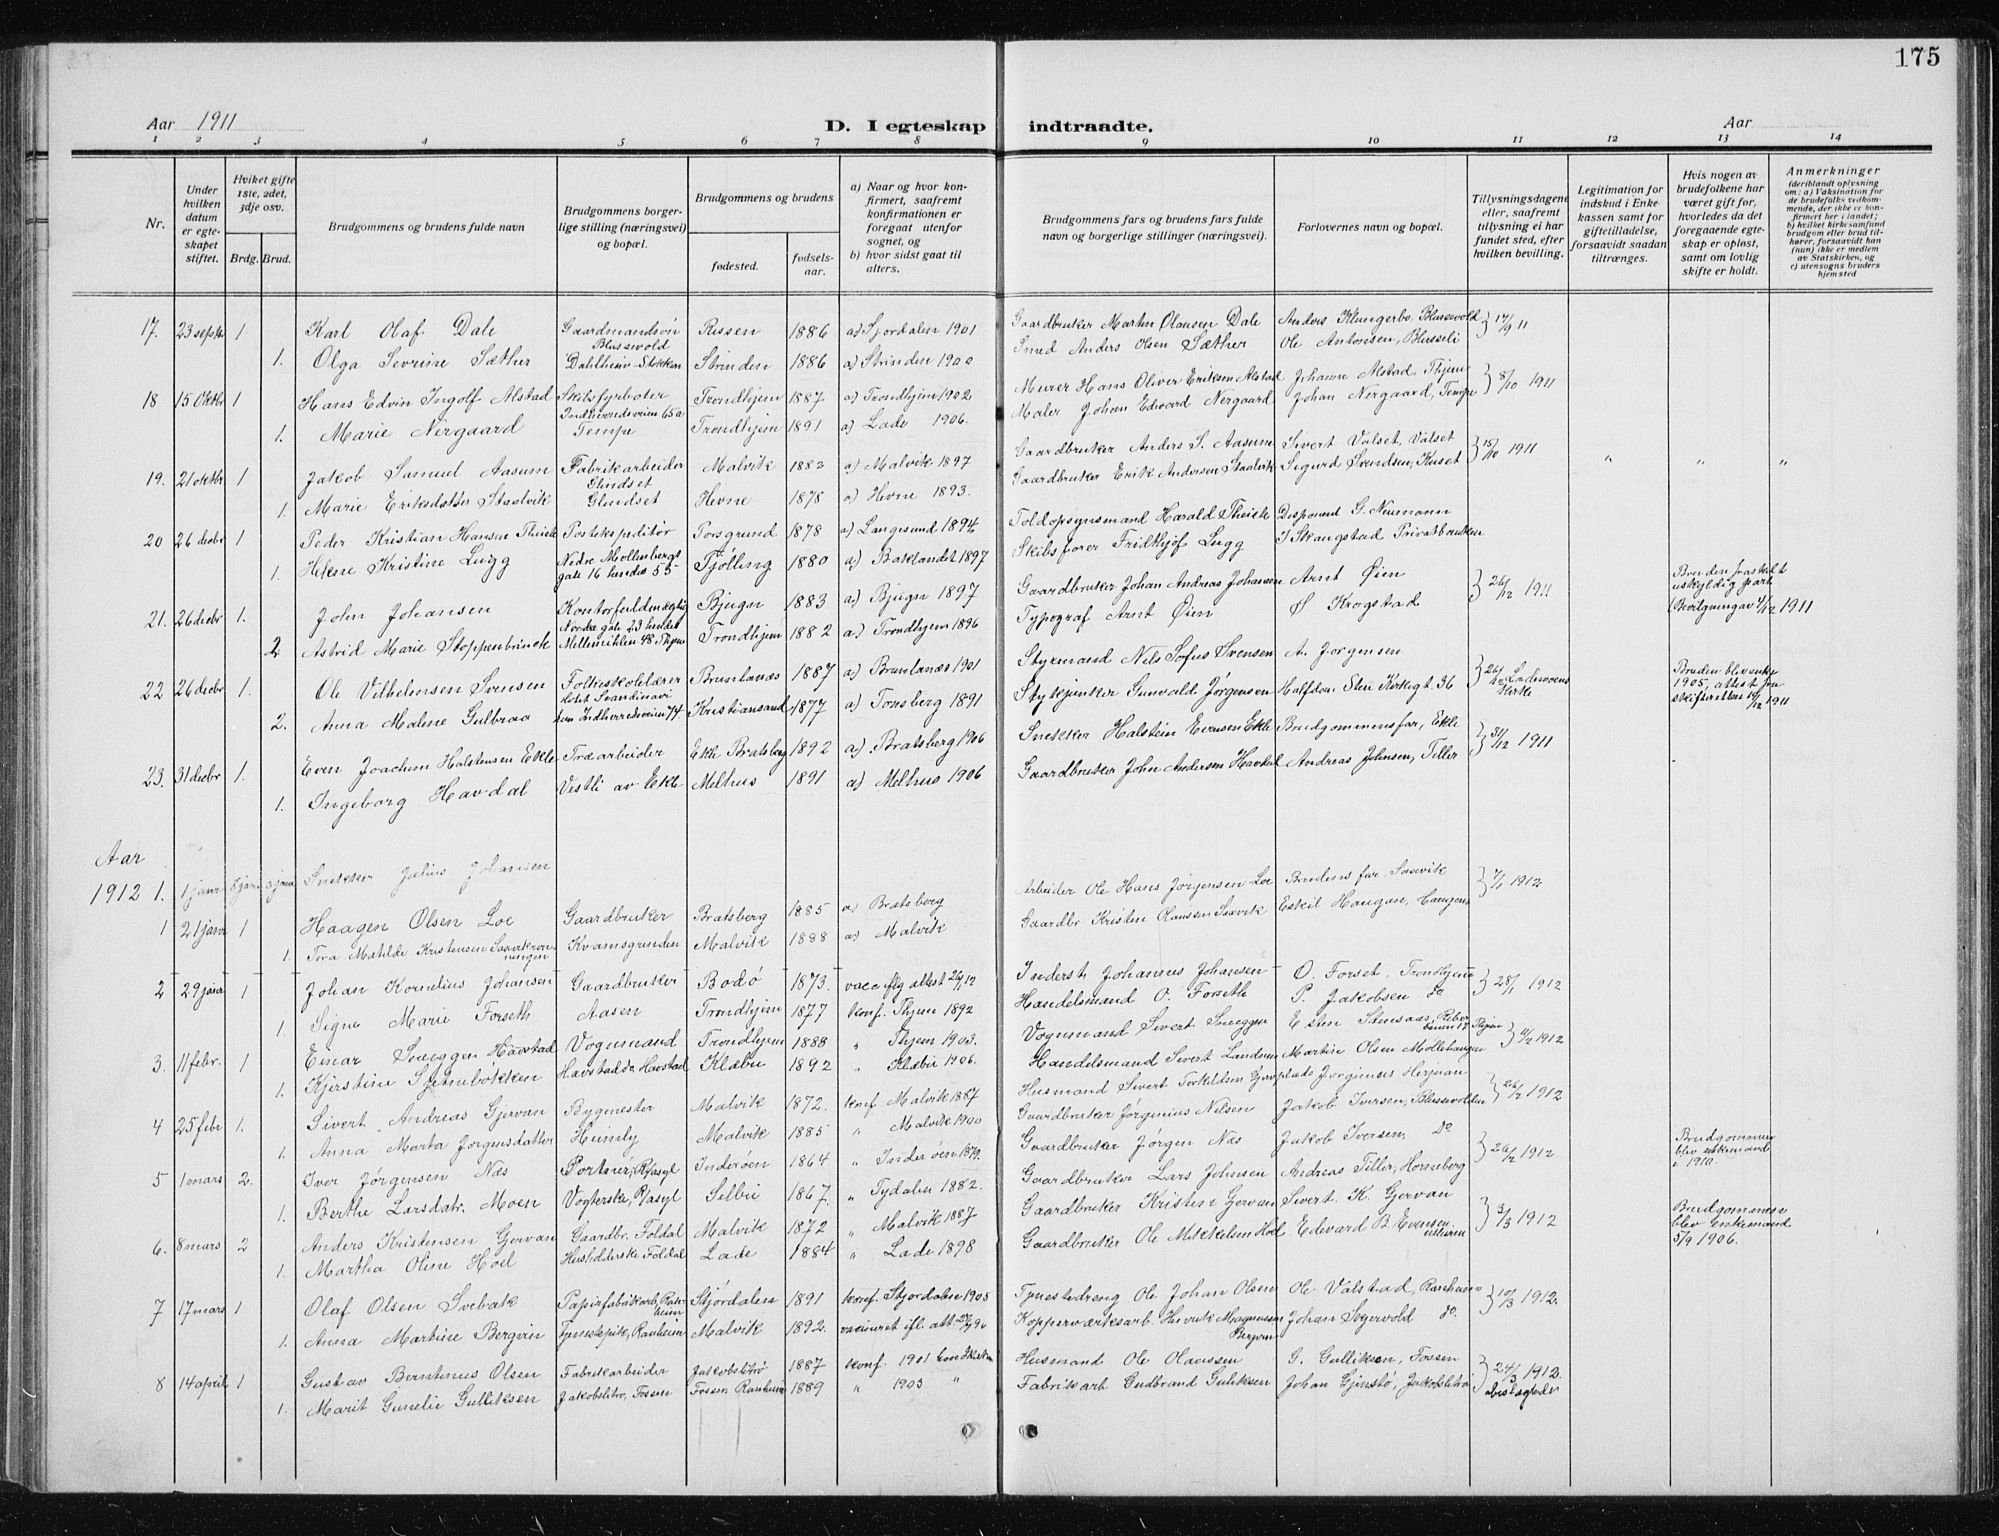 175
Aar 1911
D. I egteskap indtraadte.
Aar
1 2 3 4 5 6 7 8 9 10 11 12 13 14
Nr.
Under hvilken datum er egteskapet stiftet.
Hviket gifte 1ste, 2det, 3dje osv.
Brdg. Brud.
Brudgommens og brudens fulde navn
Brudgommens borgerlige stilling (næringsvei) og bopæl.
Brudgommens og brudens
fødested.
fødselsaar.
a) Naar og hvor konfirmert, saafremt konfirmationen er foregaat utenfor sognet, og
b) hvor sidst gaat til alters.
Brudgommens fars og brudens fars fulde navn og borgerlige stillinger (næringsvei).
Forlovernes navn og bopæl.
Tillysningsdagene eller, saafremt tillysning ei har fundet sted, efter hvilken bevilling.
Legitimation for indskud i Enkekassen samt for giftetilladelse, forsaavidt saadan tiltrænges.
Hvis nogen av brudefolkene har været gift før, hvorledes da det foregaaende egteskap er opløst, samt om lovlig skifte er holdt.
Anmerkninger
(deriblandt oplysning om: a) Vaksination for de brudefolks vedkommende, der ikke er konfirmert her i landet; b) hvilket kirkesamfund brudgom eller brud tilhører, forsaavidt han (hun) ikke er medlem av Statskirken, og c) utensogns bruders hjemsted
17. 23 septr 1 Karl Olaf Dale Gaardmandsøn Blussevold Rissen 1886 a) Stjordalen 1901 Gaardbruker Martin Olausen Dale Anders Klungerbo, Blussevold 17/9 11
1. Olga Severine Sæther Dahlheim Stokken Strinden 1886 a) Strinden 1900 Smed Anders Olsen Sæther Ole Antonsen, Blusseli
18 15 Oktbr 1 Hans Edvin Ingolf Alstad Skibsfyrbøter Indherredsveien 65a Trondhjem 1887 a) Trondhjem 1902 Murer Hans Oliver Eriksen Alstad Johann Alstad, Thjem 8/10 1911
1. Marie Nergaard Tempe Trondhjem 1891 a) Lade 1906. Maler Johan Edward Nergaard Johan Nergaard, Tempe
19. 21 oktbr 1 Jakob Samuel Aasum Fabrikarbeider Glindset Malvik 1882 a) Malvik 1897 Gaardbruker Anders S. Aasum Sivert Valset, Valset 15/10 1911 " " "
1. Marie Eriksdatter Staalvik Glindset Hevne 1878 a) Hevne 1893. Gaardbruker Erik Andersen Staalvik Sigurd Svendsen, Kuset
20 26 decbr 1 Peder Kristian Hansen Postekspeditør Porsgrund 1878 a) Langesund 1894 Toldopsynsmand Harald Disponend G. Neumann
1. Helene Kristine Lugg Nedre Møllenbergs gate 16 hendes 55 Tjølling 1880 a) Baklandet 1897 Skibsfører Fridthjof Lugg I Skaugstad Privatbanken
21. 26 decbr 1. John Johansen Kontorfuldmægtig Nordre gate 23 Bjugn 1883 a) Bjugn 1897 Gaardbruker Johan Andreas Johansen Arnt Øien 26/12 1911 Bruden fraskilt uskyldig part (Bevilgning av 4/12 1911
2 Astrid Marie Stoppenbrinck Mellemiklen 48 Thjem Trondhjem 1882 a) Trondhjem 1896 Typograf Arnt Øien Ø Krogstad
22 26 decbr 1. Ole Vilhelmsen Svensen Folkeskolelærer Hotel Scandinavi Brunlanæs 1887 a) Brunlanæs 1901 Styrmand Nils Sofus Svensen A. Jørgensen 26/12 Lademoens kirke Bruden blev enke 1905, attest fra skifteretten 19/12 1911
2. Anna Malene Gulbraa Indherredsveien 74 Kristiansand 1877 a) Tønsberg 1891 Stykjunker Gunvald Jørgensen Halfdan Sten Kirkegt. 36
23. 31 decbr 1. Even Joachim Halstensen Ekle Træarbeider Ekle Bratsberg 1892 a) Bratsberg 1906 Snekker Halstein Evensen Ekle Brudgommens far, Ekle 31/12 1911
1. Ingeborg Havdal Vestli av Ekle Melhus 1891 a) Melhus 1906 Gaardbruker John Andersen Havdal Andreas Johnsen, Tiller
Aar
1912 1. 1 janr Snekker Julius Johansen
1 21 janr 1 Haagen Olsen Loe Gaardbruker Bratsberg 1885 a) Bratsberg Arbeider Ole Hans Jørgensen Loe Brudens far, Saxvik 7/1 1912
1. Tora Matilde Kristensen Kvamsgrinden Malvik 1888 a) Malvik Gaardbr. Kristen Olaussen Saxvik Eskil Haugan, Haugan
2 29 janr 1 Johan Kornelius Johansen Gaardbruker Bodø 1873. vacc. iflg attest 26/1 12 Inderst Johannes Johansen O. Forset, Trondhjem 28/1 1912
1. Signe Marie Forseth Aasen Trondhjem 1877 konf. Thjem 1892 Handelsmand O. Forseth P. Jakobsen do
3. 11 febr. 1 Einar Snæggen Havstad Vognmand Trondhjem 1888 " Thjem 1903. Vognmand Sivert Snæggen Esten Stensaas, Thjem 4/2 1912
1. Kjerstine Stjernebokken Havstad Klæbu 1892 " Klæbu 1906. Handelsmand Sivert Martin Olsen Møllehaugen
4 25 febr 1. Sivert Andreas Gjervan Bygmester Malvik 1872. konf Malvik 1887 Husmand Sivert Torkildsen Jørginus 26/2 1912
1. Anna Marta Jørgensdatter Heimly Malvik 1885 " Malvik 1900 Gaardbruker Jørginus Nilsen Jakob Iversen, Blussevolden
5 1 mars 2. Iver Jørgensen Næs Portner, Rasyl Inderøen 1864 " Inderøen 1879. Gaardbruker Jørgen Næs Jakob Iversen, do 26/2 1912 Brudgommen blev enkemand i 1910.
1. Berthe Larsdatr. Moen Vogterske, Rasyl Selbu 1867. " Tydalen 1882. Gaardbruker Lars Johnsen Andreas Tiller, Horneberg
6. 8 mars 2 Anders Kristensen Gjervan Gaardbr. Foldal Malvik 1872 " Malvik 1887 Gaardbruker Kristen Gjervan Sivert K. Gjervan 3/3 1912 Brudgommen blev enkemand 5/9 1906.
1. Martha Oline Hoel Husholderske Foldal Lade 1884 " Lade 1898 Gaardbruker Ole Mikkelsen Hoel Edevard B. Evensen
7 17 mars 1 Olaf Olsen Svebak Papirfabrikarb, Ranheim Stjørdalen 1891 konf. Stjørdalen 1905 Tjenestedreng Ole Johan Olsen Ole Valstad, Ranheim 10/3 1912.
1. Anna Martine Bergvin Tjenestepike, Ranheim Malvik 1892. vaccineret ifl. att. 27/9 96 Kopperværksarb. Henrik Magnussen Bergvin Johan Segervold do.
8 14 april 1 Gustav Berntinus Olsen Fabrikarbeider Jakobslitrø 1887 konf. 1901 Husmand Ole Olaussen G. Gulliksen, Fossen 24/3 1912.
1. Marit Gunelie Gulliksen Jakobslitrø, Fossen Fossen Ranheim 1889 " 1903 " Fabrikarb Gudbrand Guliksen Johan Gjenstø, Jakobslitrø